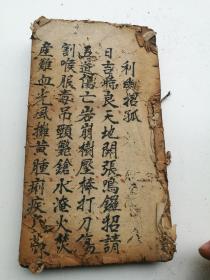 利幽招孤
日吉時良天地開張鳴鑼招請
五造傷亡岩崩樹壓棒打刀傷
割喉脹毒吊頸點鎗水淹火焚
產難血光風攤黃腫痢疾